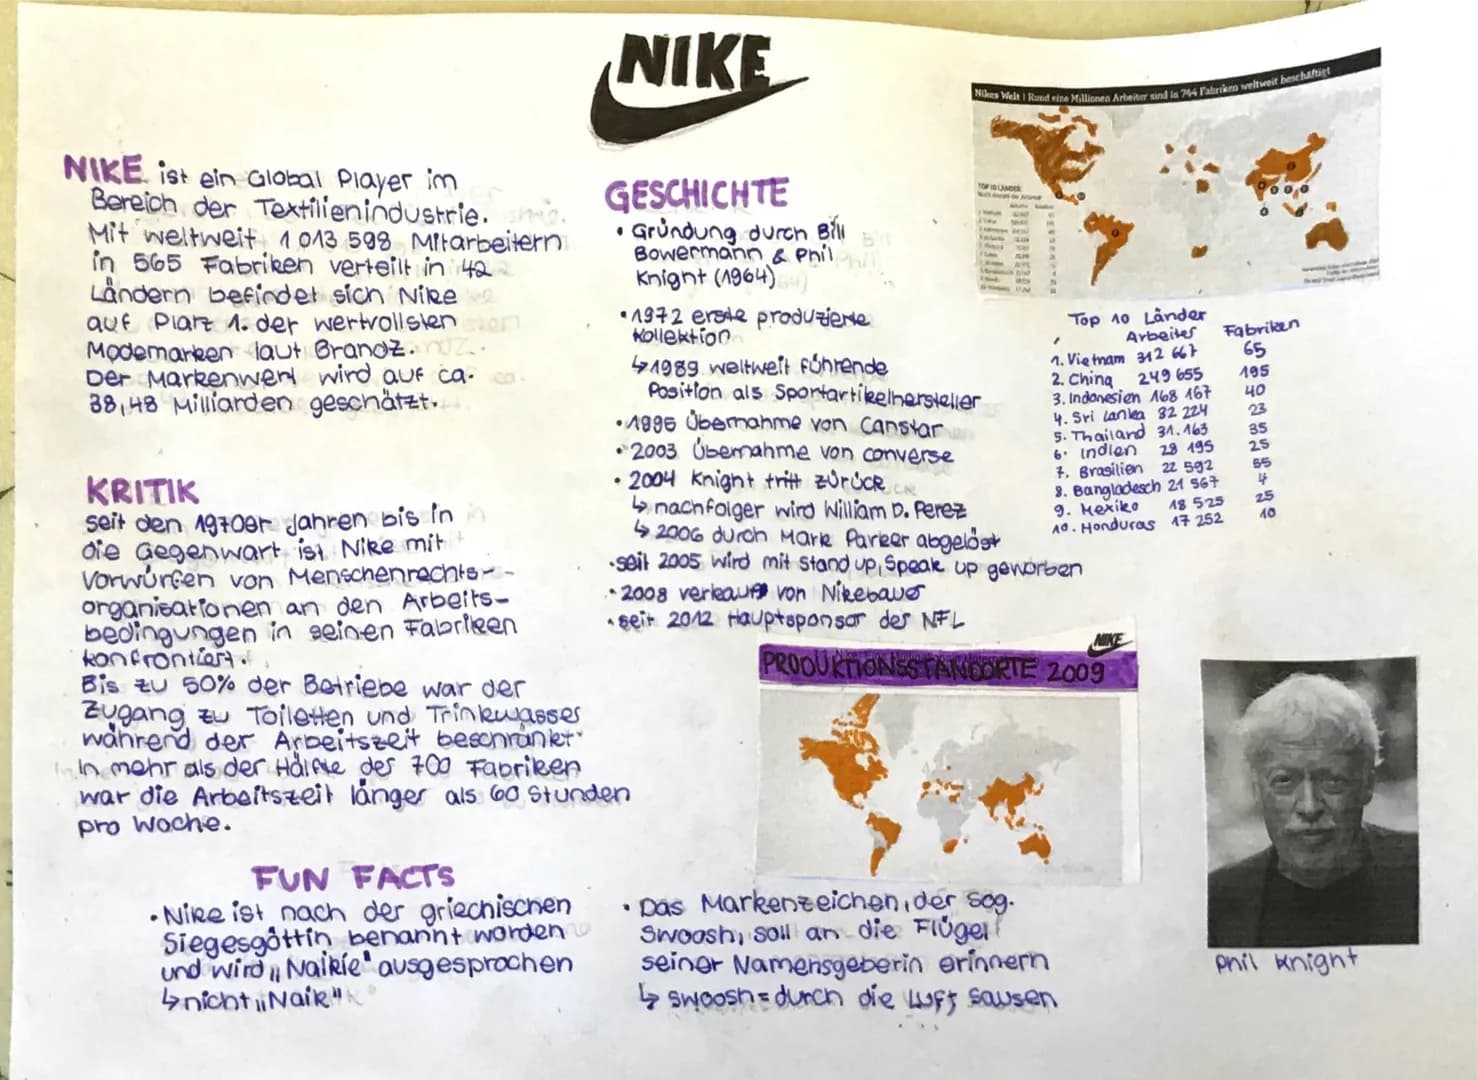 NIKE
NIKE ist ein Global Player im
Bereich der Textilienindustrie.
Mit weltweit 1 013 598 Mitarbeitern
in 565 Fabriken verteilt in 42
Ländern befindet sich Nike
auf Platz 1. der wertvollsten
Modemarken laut BrandZ.
Der Markenwert wird auf ca.
38,48 Milliarden geschätzt.
KRITIK
seit den 1970er Jahren bis in
die Gegenwart ist Nike mit
Vorwürfen von Menschenrechts-
organisationen an den Arbeits-
bedingungen in seinen Fabriken
konfrontiert.
Bis zu 50% der Betriebe war der
Zugang zu Toiletten und Trinkwasser
während der Arbeitszeit beschränkt.
In mehr als der Hälfte der 700 Fabriken
war die Arbeitszeit länger als 60 Stunden
pro Woche.
GESCHICHTE
• Gründung durch Bill
Bowermann & Phil
Knight (1964)
• 1972 erste produzierte
Kollektion
↳ 1989 weltweit führende
Position als Sportartikelhersteller
• 1995 Übernahme von Canstar
• 2003 Übernahme von Converse
• 2004 Knight tritt zurück
↳ nachfolger wird William D. Perez
↳ 2006 durch Mark Parker abgelöst
• seit 2005 wird mit Stand up, Speak up geworben
• 2008 verkauf von Nikebauer
• seit 2012 Hauptsponsor der NFL
Nikes Welt | Rund eine Millionen Arbeiter sind in 744 Fabriken weltweit beschäftigt
TOP 10 LÄNDER
Top 10 Länder
Arbeiter Fabriken
1. Vietnam 312 667 65
2. China 249 655 195
3. Indonesien 168 167 40
4. Sri Lanka 32 224 23
5. Thailand 31.163 35
6. Indien 28 195 25
7. Brasilien 22 592 55
8. Bangladesch 21 567 4
9. Mexiko 18 525 25
10. Honduras 17 252 10
NIKE
PRODUKTIONSSTANDORTE 2009
Phil Knight
FUN FACTS
• Nike ist nach der griechischen
Siegesgöttin benannt worden
und wird „Naikie" ausgesprochen
↳ nicht „Naik"
• Das Markenzeichen, der sog.
Swoosh, soll an die Flügel
seiner Namensgeberin erinnern
↳ swoosh = durch die Luft sausen